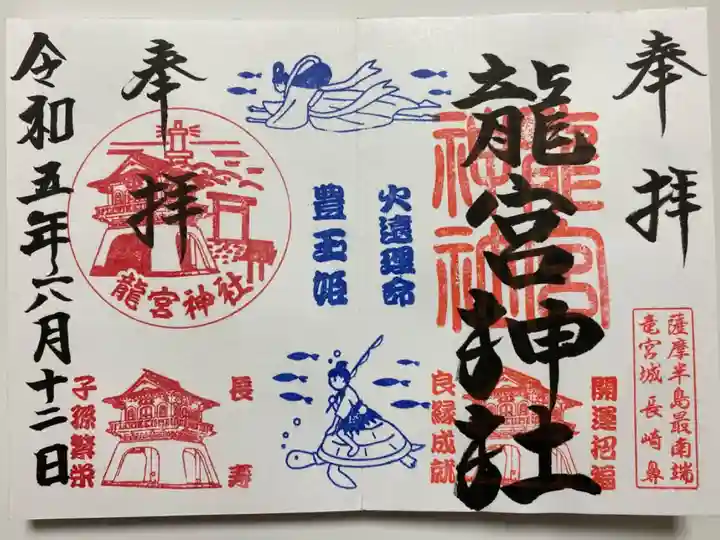 奉拝
龍宮神社
龍宮神社
薩摩半島最南端
竜宮城長崎鼻
開運招福
良縁成就
火遠理命
豊玉姫
奉拝
龍宮神社
長寿
子孫繁栄
令和五年六月十二日